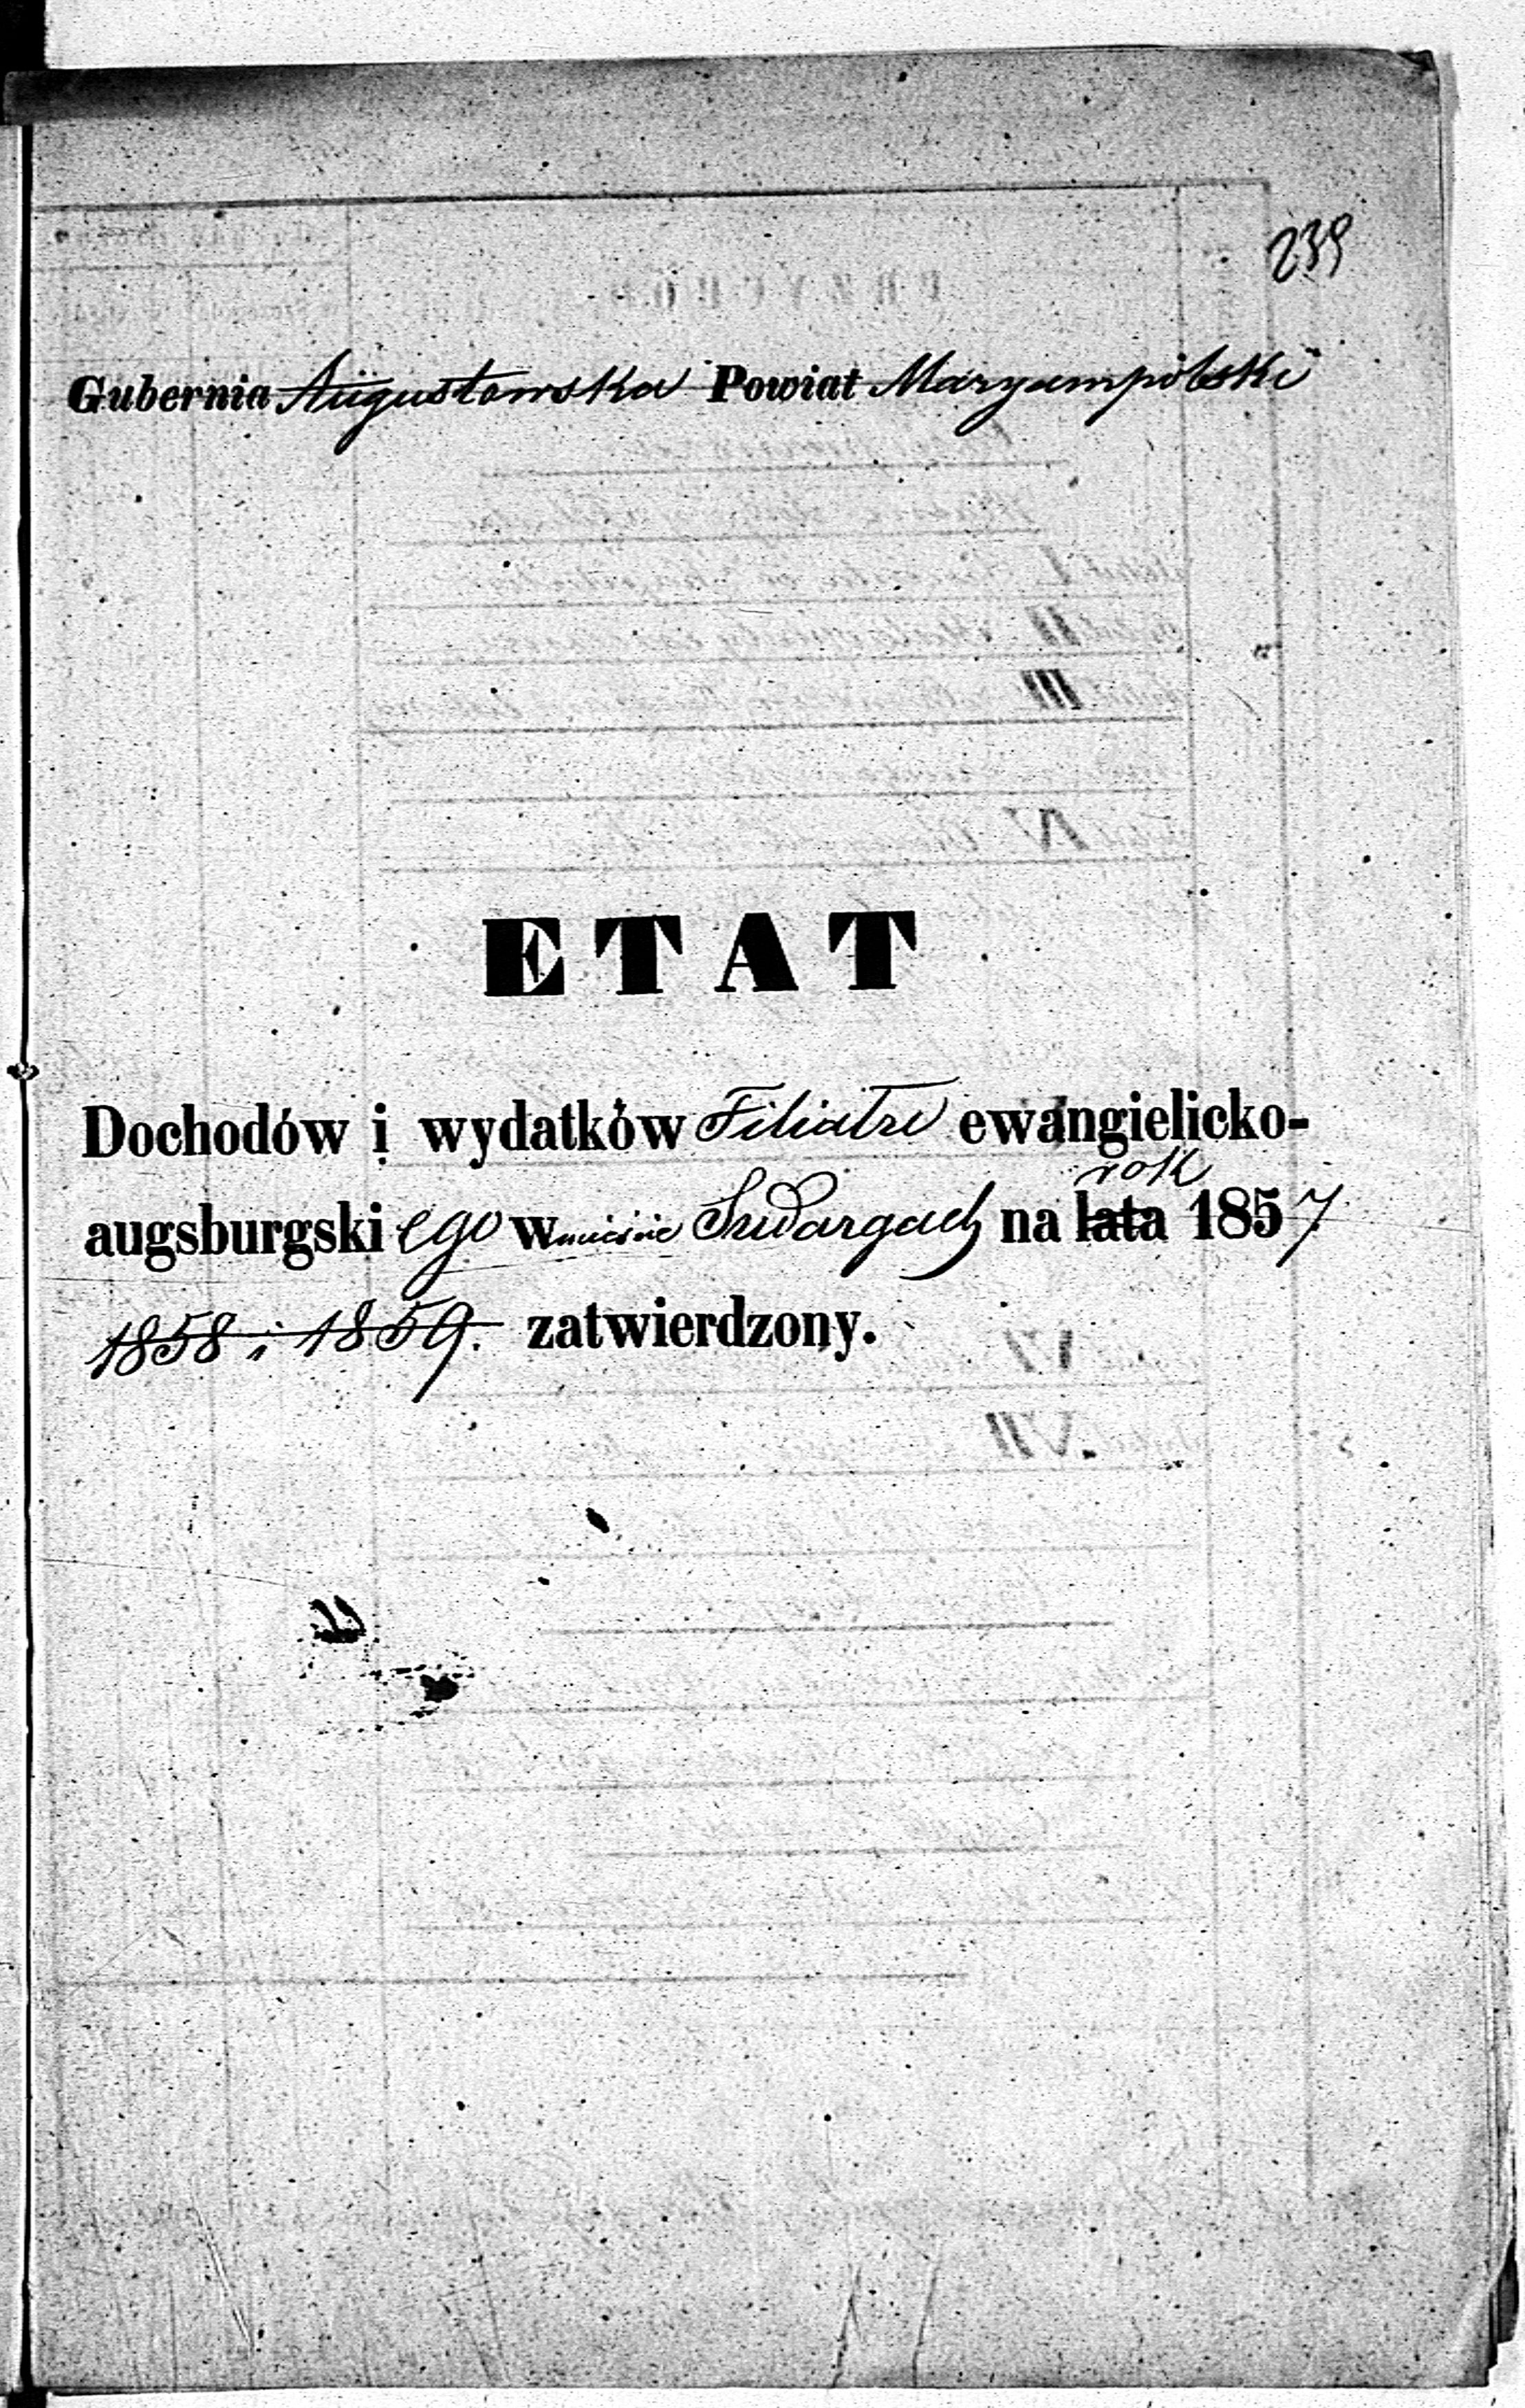 239
Gubernia Augustowska Powiat Maryampolski
ETAT
Dochodów i wydatków Filiału ewangielicko-
rok
augsburgskiego w mieście Szwargach na lata 1857
1858 i 1859. zatwierdzony.